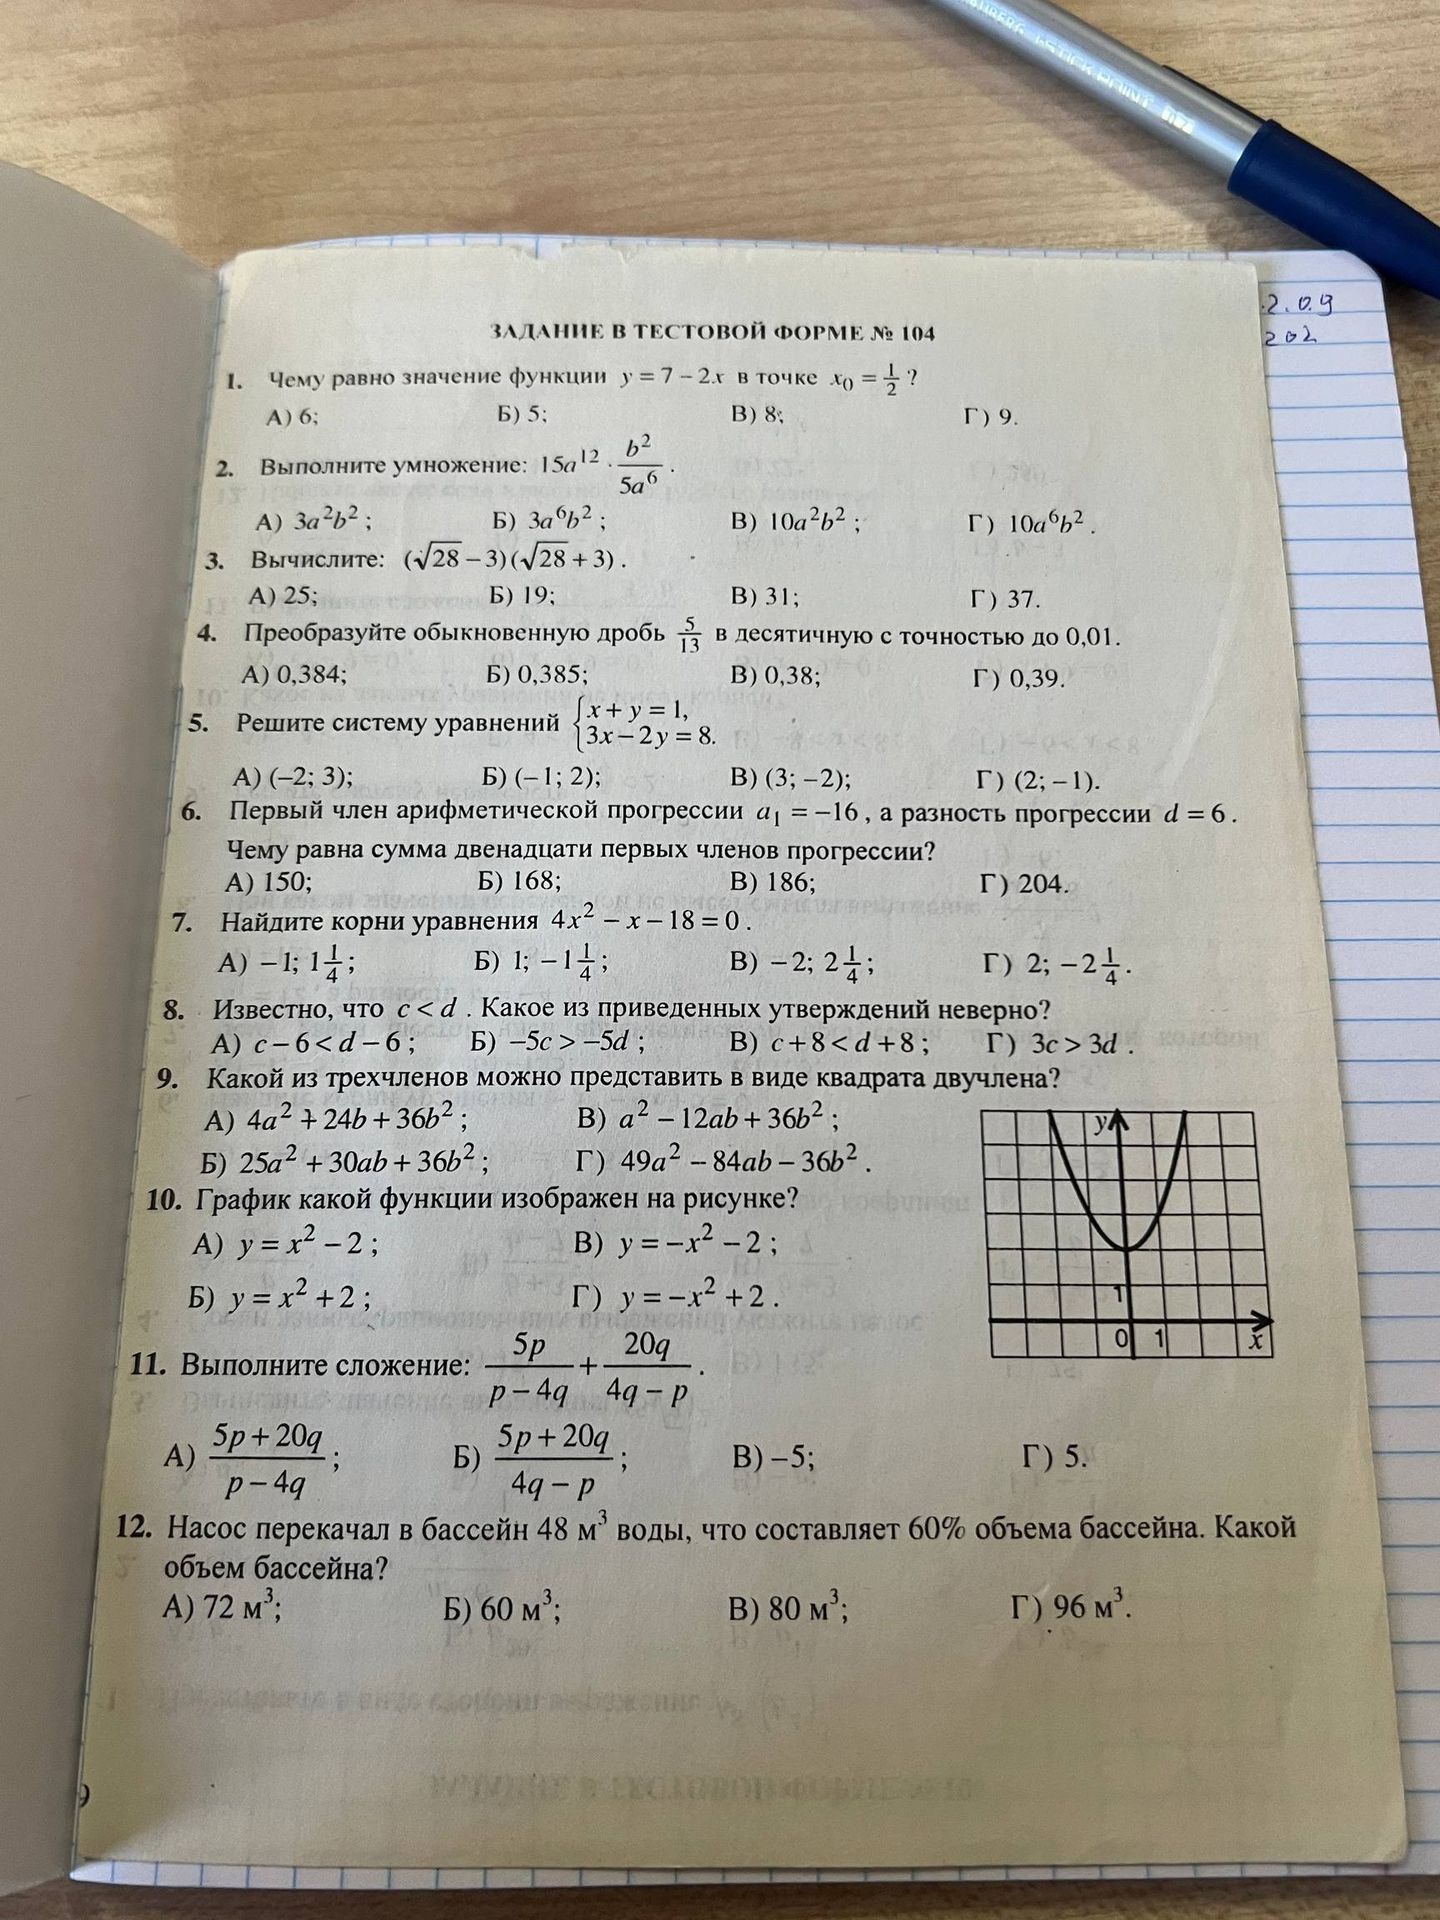 STICK POINT
2.09
202
ЗАДАНИЕ В ТЕСТОВОЙ ФОРМЕ № 104
1. Чему равно значение функции y = 7 – 2x в точке x₀ = 1/2 ?
А) 6; Б) 5; В) 8; Г) 9.
2. Выполните умножение: 15a¹² · b²/5a⁶ .
А) 3a²b² ; Б) 3a⁶b² ; В) 10a²b² ; Г) 10a⁶b² .
3. Вычислите: (√28 – 3)(√28 + 3) .
А) 25; Б) 19; В) 31; Г) 37.
4. Преобразуйте обыкновенную дробь 5/13 в десятичную с точностью до 0,01.
А) 0,384; Б) 0,385; В) 0,38; Г) 0,39.
5. Решите систему уравнений { x + y = 1,
3x – 2y = 8.
А) (–2; 3); Б) (–1; 2); В) (3; –2); Г) (2; –1).
6. Первый член арифметической прогрессии a₁ = –16 , а разность прогрессии d = 6 .
Чему равна сумма двенадцати первых членов прогрессии?
А) 150; Б) 168; В) 186; Г) 204.
7. Найдите корни уравнения 4x² – x – 18 = 0 .
А) –1; 1 1/4 ; Б) 1; –1 1/4 ; В) –2; 2 1/4 ; Г) 2; –2 1/4 .
8. Известно, что c < d . Какое из приведенных утверждений неверно?
А) c – 6 < d – 6 ; Б) –5c > –5d ; В) c + 8 < d + 8 ; Г) 3c > 3d .
9. Какой из трехчленов можно представить в виде квадрата двучлена?
А) 4a² + 24b + 36b² ; В) a² – 12ab + 36b² ;
Б) 25a² + 30ab + 36b² ; Г) 49a² – 84ab – 36b² .
10. График какой функции изображен на рисунке?
А) y = x² – 2 ; В) y = –x² – 2 ;
Б) y = x² + 2 ; Г) y = –x² + 2 .
y
1
0 1 x
11. Выполните сложение: 5p/(p – 4q) + 20q/(4q – p) .
А) (5p + 20q)/(p – 4q) ; Б) (5p + 20q)/(4q – p) ; В) –5; Г) 5.
12. Насос перекачал в бассейн 48 м³ воды, что составляет 60% объема бассейна. Какой
объем бассейна?
А) 72 м³; Б) 60 м³; В) 80 м³; Г) 96 м³.